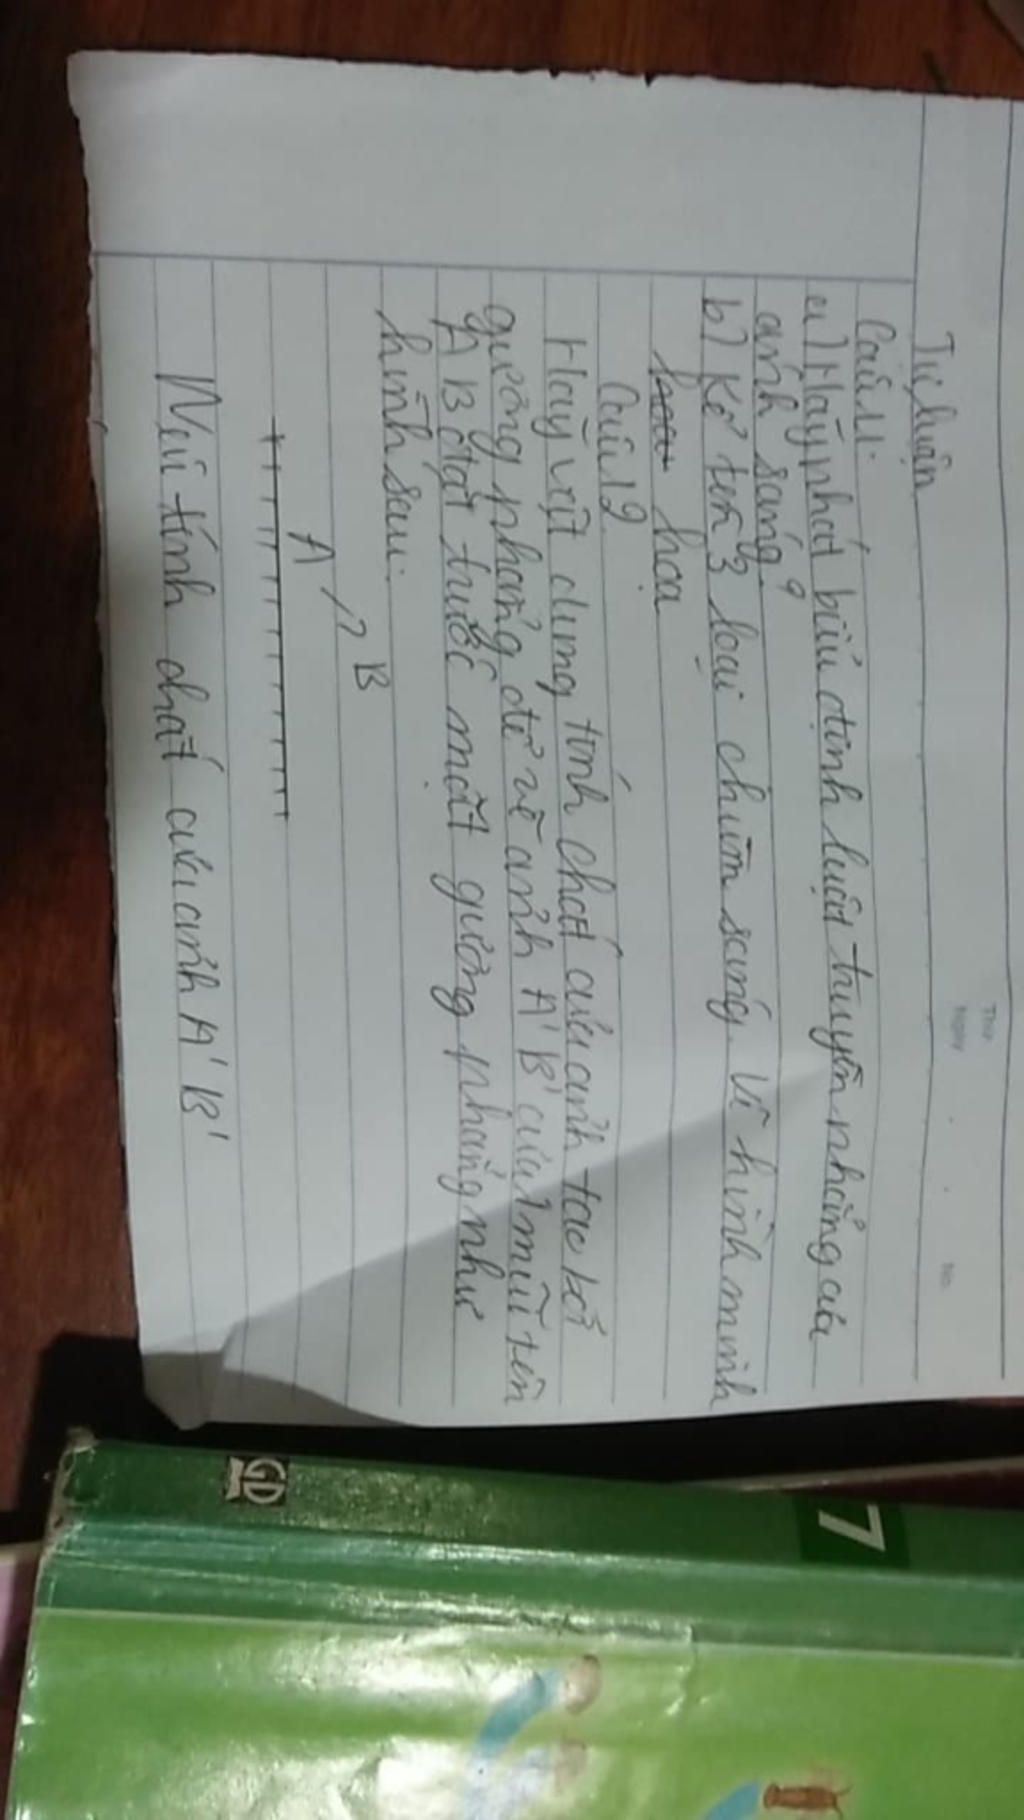 Tự luận
Thứ
Ngày
No.
Câu 11.
a) Hãy phát biểu định luật truyền thẳng của
ánh sáng?
b) Kể tên 3 loại chùm sáng. Vẽ hình minh
hoạ
Câu 12
Hãy vận dụng tính chất của ảnh tạo bởi
gương phẳng để vẽ ảnh A'B' của 1 mũi tên
AB đặt trước một gương phẳng như
hình sau:
A B
Nêu tính chất của ảnh A'B'
7
GD